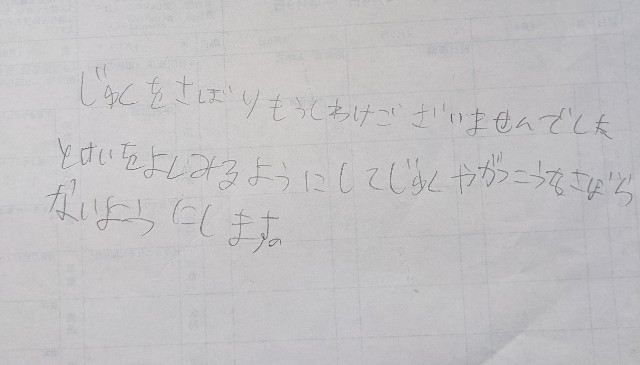 じゅくをさばりもうしわけございませんでした
とけいをよしみるようにしてじゅくやがっこうをさぼら
ないようにします。